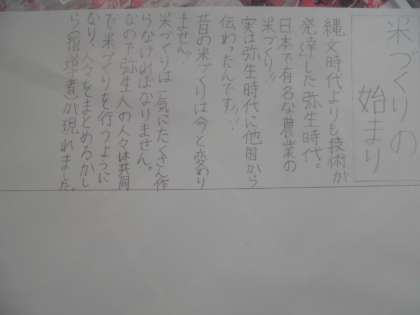 米づくりの
始まり
縄文時代よりも技術が
発達した弥生時代。
日本で有名な農業の
米づくり!!
実は弥生時代に他国から
伝わったんです!!
昔の米づくりは今と変わり
ません。
米づくりは一気にたくさん作
らなければなりません。
なので弥生人の人々は共同
で米づくりを行うように
なり、人々をまとめるかし
ら(指導者)が現れました。